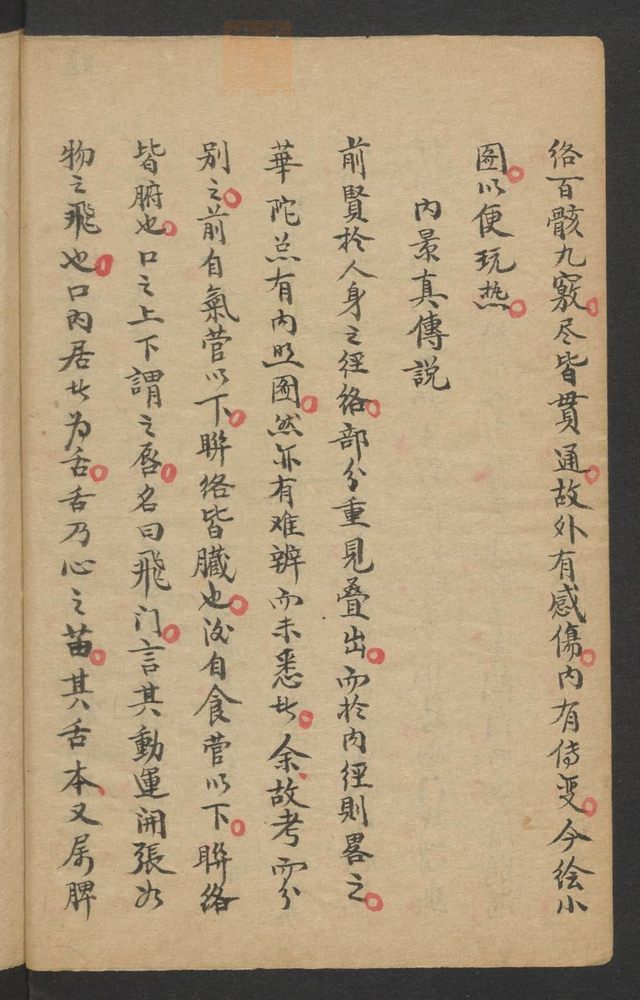 络百骸九竅尽皆貫通故外有感傷内有传变今绘小
图以便玩热
内景真傳説
前賢於人身之径络部分重見叠出而於内径則畧之
華陀总有内照图然亦有难辨而未悉此余故考而分
别之前自氣管以下聨络皆臓也後自食管以下聨络
皆腑也口之上下謂之唇名曰飛门言其動運開張如
物之飛也口内居此为舌舌乃心之苗其舌本又属脾